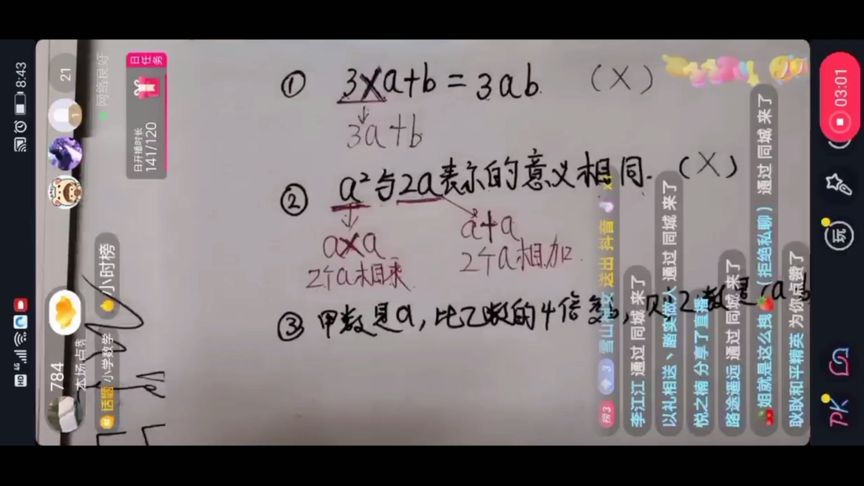 ① 3×a+b=3ab. (×)
3a+b
② a²与2a表示的意义相同. (×)
a×a
2个a相乘
a+a
2个a相加
③ 甲数是a,比乙数的4倍多
数是
8:43
HD 4G
21
网络良好
日任务
日开播时长
141/120
小时榜
784
本场点
话题 小学数学
03:01
玩
PK
送出 抖音
李江江 通过 同城 来了
以礼相送、踏实做人 通过 同城 来了
悦之楠 分享了直播
路途遥远 通过 同城 来了
姐就是这么拽 (拒绝私聊) 通过 同城 来了
耿耿和平精英 为你点赞了